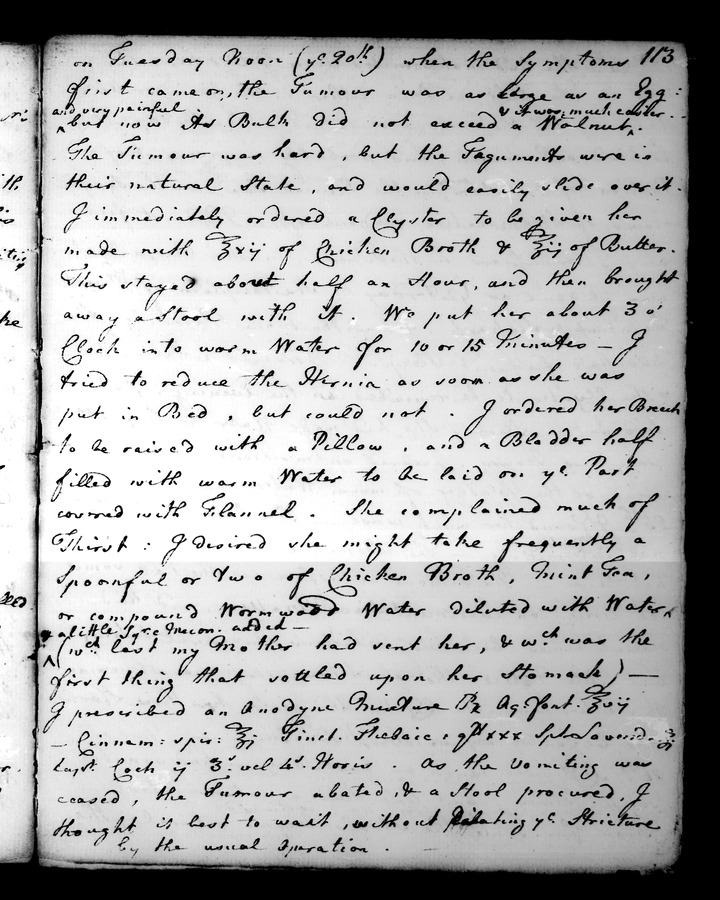 113
on Tuesday Noon (ye. 20th) when the Symptoms
first came on, the Tumour was as large as an Egg:
and very painful & it was much easier.
but now its Bulk did not exceed a Walnut.
The Tumour was hard, but the Teguments were in
their natural State, and would easily slide over it.
I immediately ordered a Clyster to be given her
made with ℥xij of Chicken Broth & ℥ij of Butter.
This stayed about half an Hour, and then brought
away a Stool with it. We put her about 3 o'
Clock into warm Water for 10 or 15 Minutes — I
tried to reduce the Hernia as soon as she was
put in Bed, but could not. I ordered her Breech
to be raised with a Pillow, and a Bladder half
filled with warm Water to be laid on ye. Part
covered with Flannel. She complained much of
Thirst: I desired she might take frequently a
Spoonful or two of Chicken Broth, Mint Tea,
or compound Wormwood Water diluted with Water
a little Syr. e Mecon. added —
(wch. last my Mother had sent her, & wch was the
first thing that settled upon her Stomach) —
I prescribed an Anodyne Mixture ℞ Aq. font. ℥vij
— Cinnam: spir: ℥j Tinct. Thebaic: gtt xxx Sp. Lavend. ʒj
Capt. Coch ij 3s. vel 4s. Horis. As the Vomiting was
ceased, the Tumour abated, & a Stool procured, I
thought it best to wait, without dilating ye. Stricture
by the usual Operation.